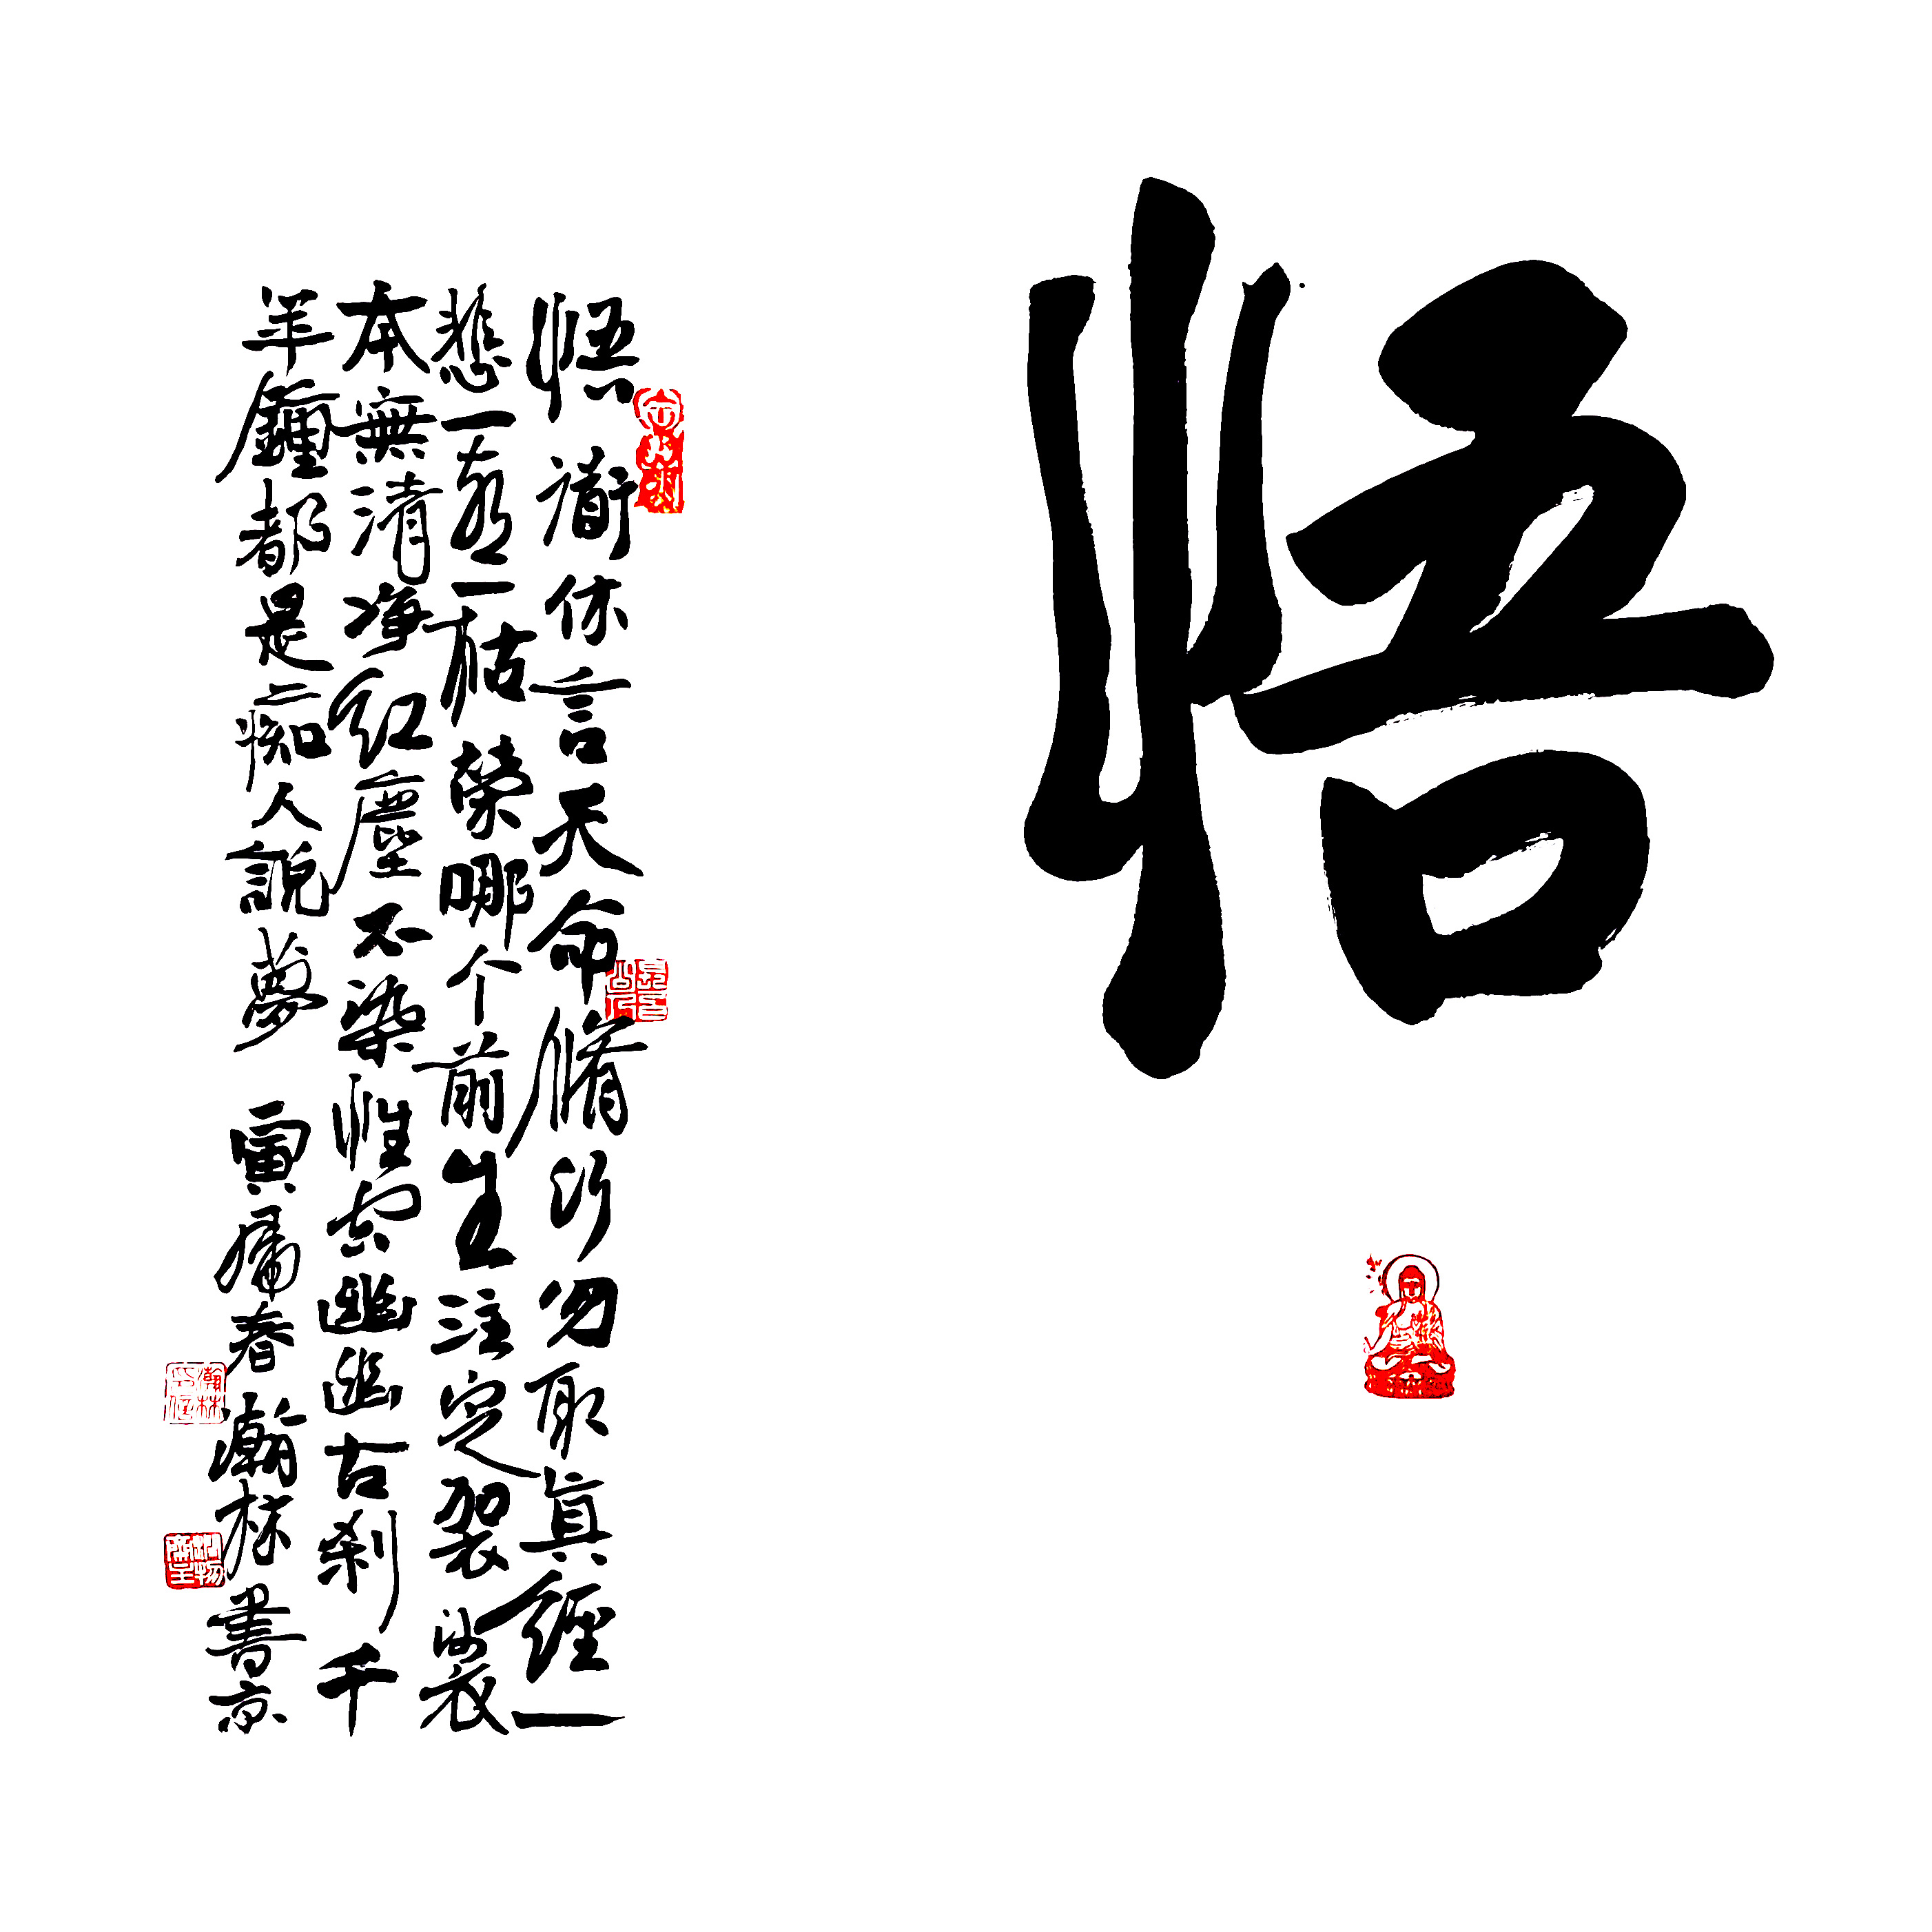 悟
悟衜休言天命修行勿取真經一
悲一喜一枯榮哪个前生注定袈裟
本無清净紅塵不染性空幽幽古刹千
年鐘都是痴人說夢 寅虎春瀚林書京
瀚林印信